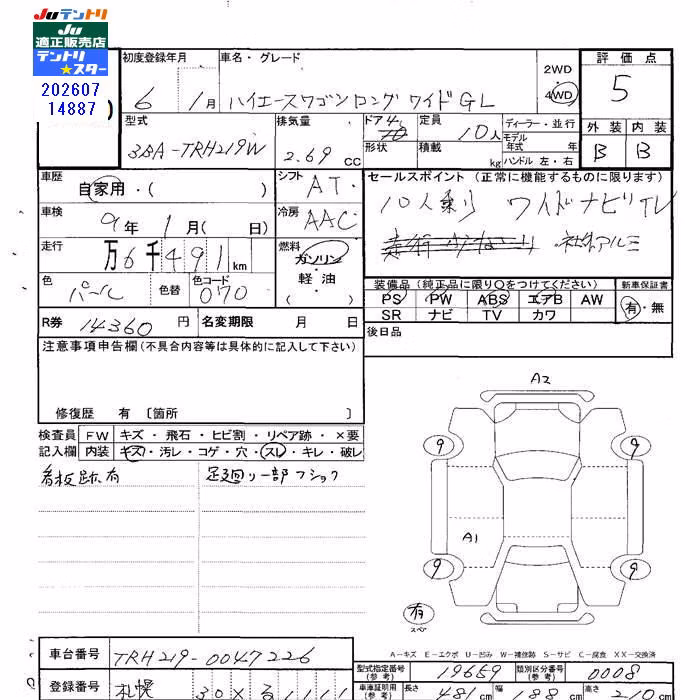 Juテントリ
Ju
適正販売店
テントリ
★スター
202607
14887
初度登録年月 車名・グレード 評価点
6 1月 ハイエースワゴンロング ワイドGL 2WD 4WD 5
型式 排気量 ドア 4 定員 10人 ディーラー・並行 外装 内装
3BA-TRH219W 2.69 CC 形状 積載 kg モデル年式 年 B B
ハンドル 左・右
車歴 自家用・( ) シフト AT セールスポイント (正常に機能するものに限ります)
車検 9年 1月( 日) 冷房 AAC 10人乗り ワイドナビTV
走行 万6千491km 燃料 ガソリン・軽油 社外アルミ
色 パール 色替 色コード 070 装備品 (純正品に限り○をつけてください) 新車保証書
PS PW ABS エアB AW 有・無
SR ナビ TV カワ
R券 14360円 名変期限 月 日 後日品
注意事項申告欄 (不具合内容等は具体的に記入して下さい)
修復歴 有 〔箇所 〕
検査員 FW キズ・飛石・ヒビ割・リペア跡・×要
記入欄 内装 キズ・汚レ・コゲ・穴・スレ・キレ・破レ
看板跡有 足廻リ一部フショク
A2
9 9
A1
9 9
有
スペア
A-キズ E-エクボ U-凹み W-補修跡 S-サビ C-腐食 XX-交換済
車台番号 TRH219-0047226
型式指定番号(参考) 19659 類別区分番号(参考) 0008
登録番号 札幌 30× る 1111
車庫証明用(参考) 長さ 481cm 幅 188cm 高さ 210cm